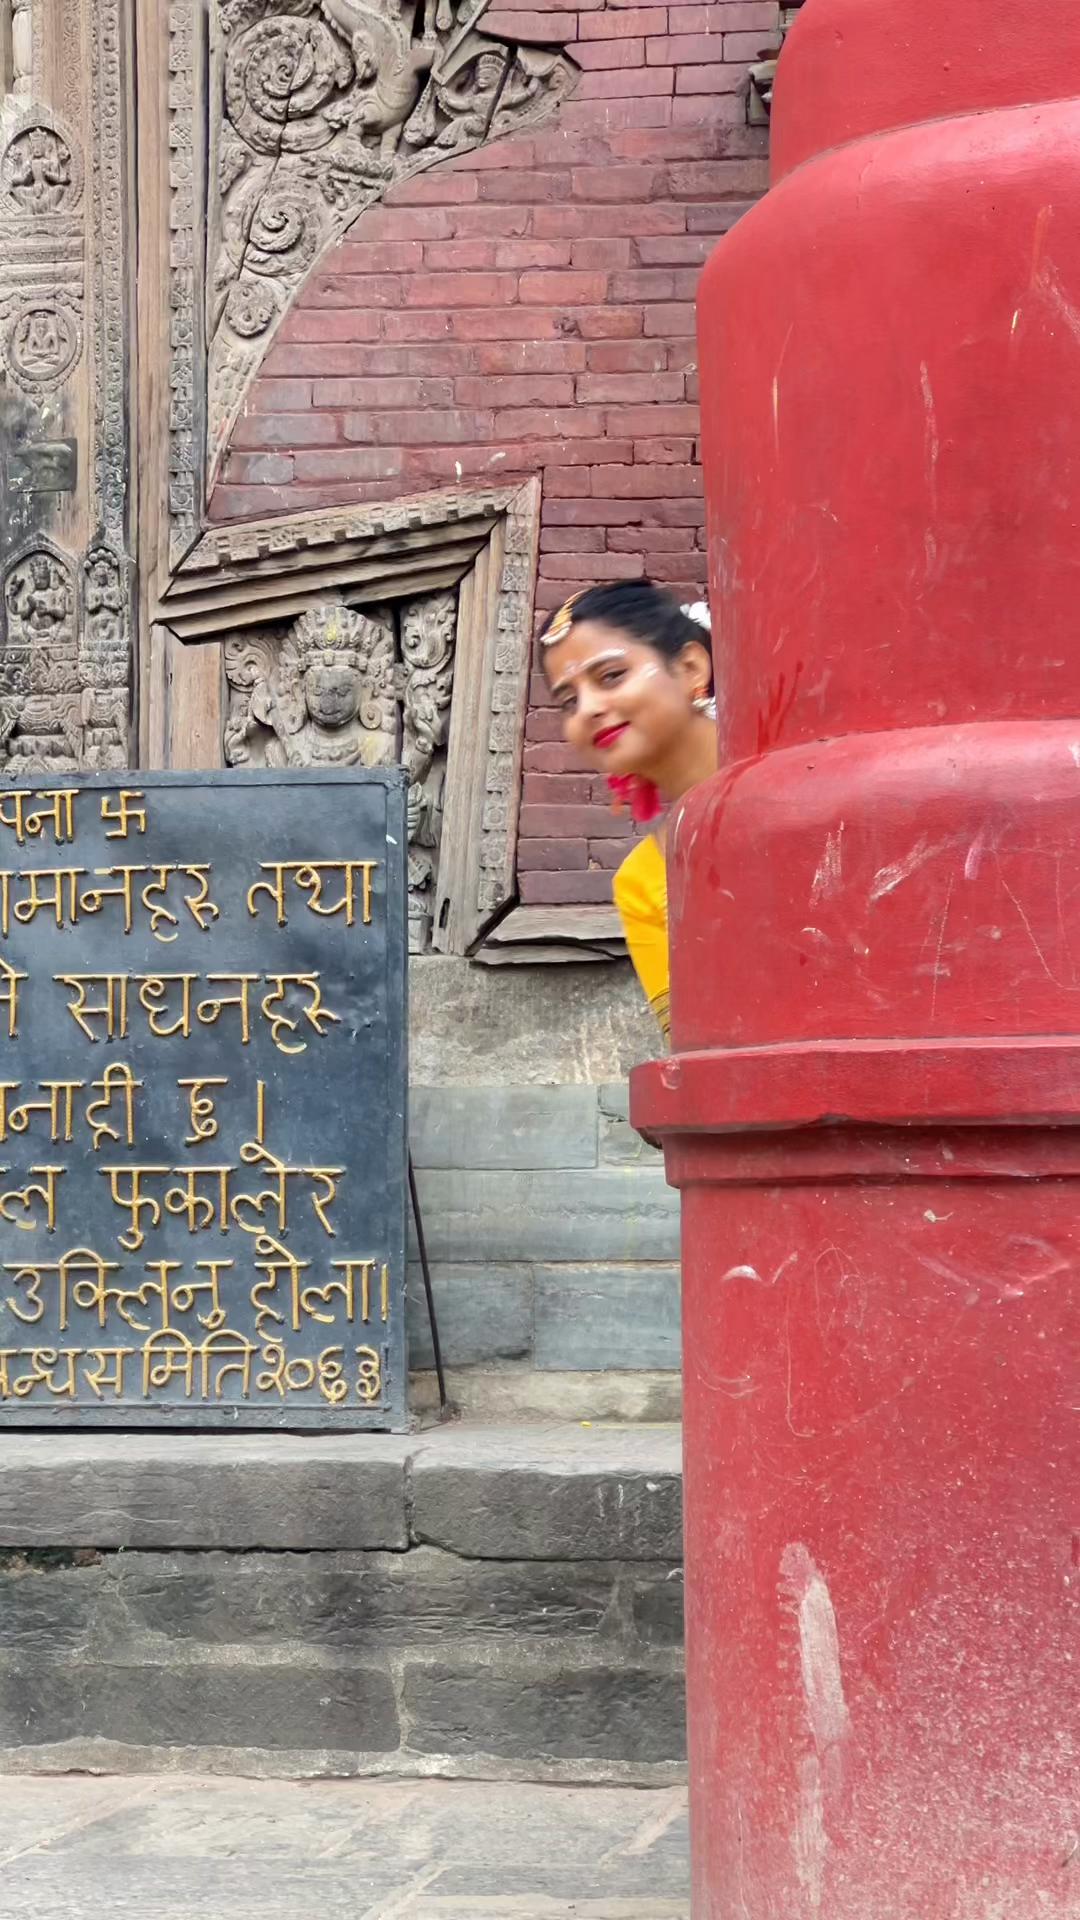 पना 卐
मानहरु तथा
साधनहरु
नाट्री छ।
ल फुकालेर
उक्लिनु होला।
न्धसमिति२०६३